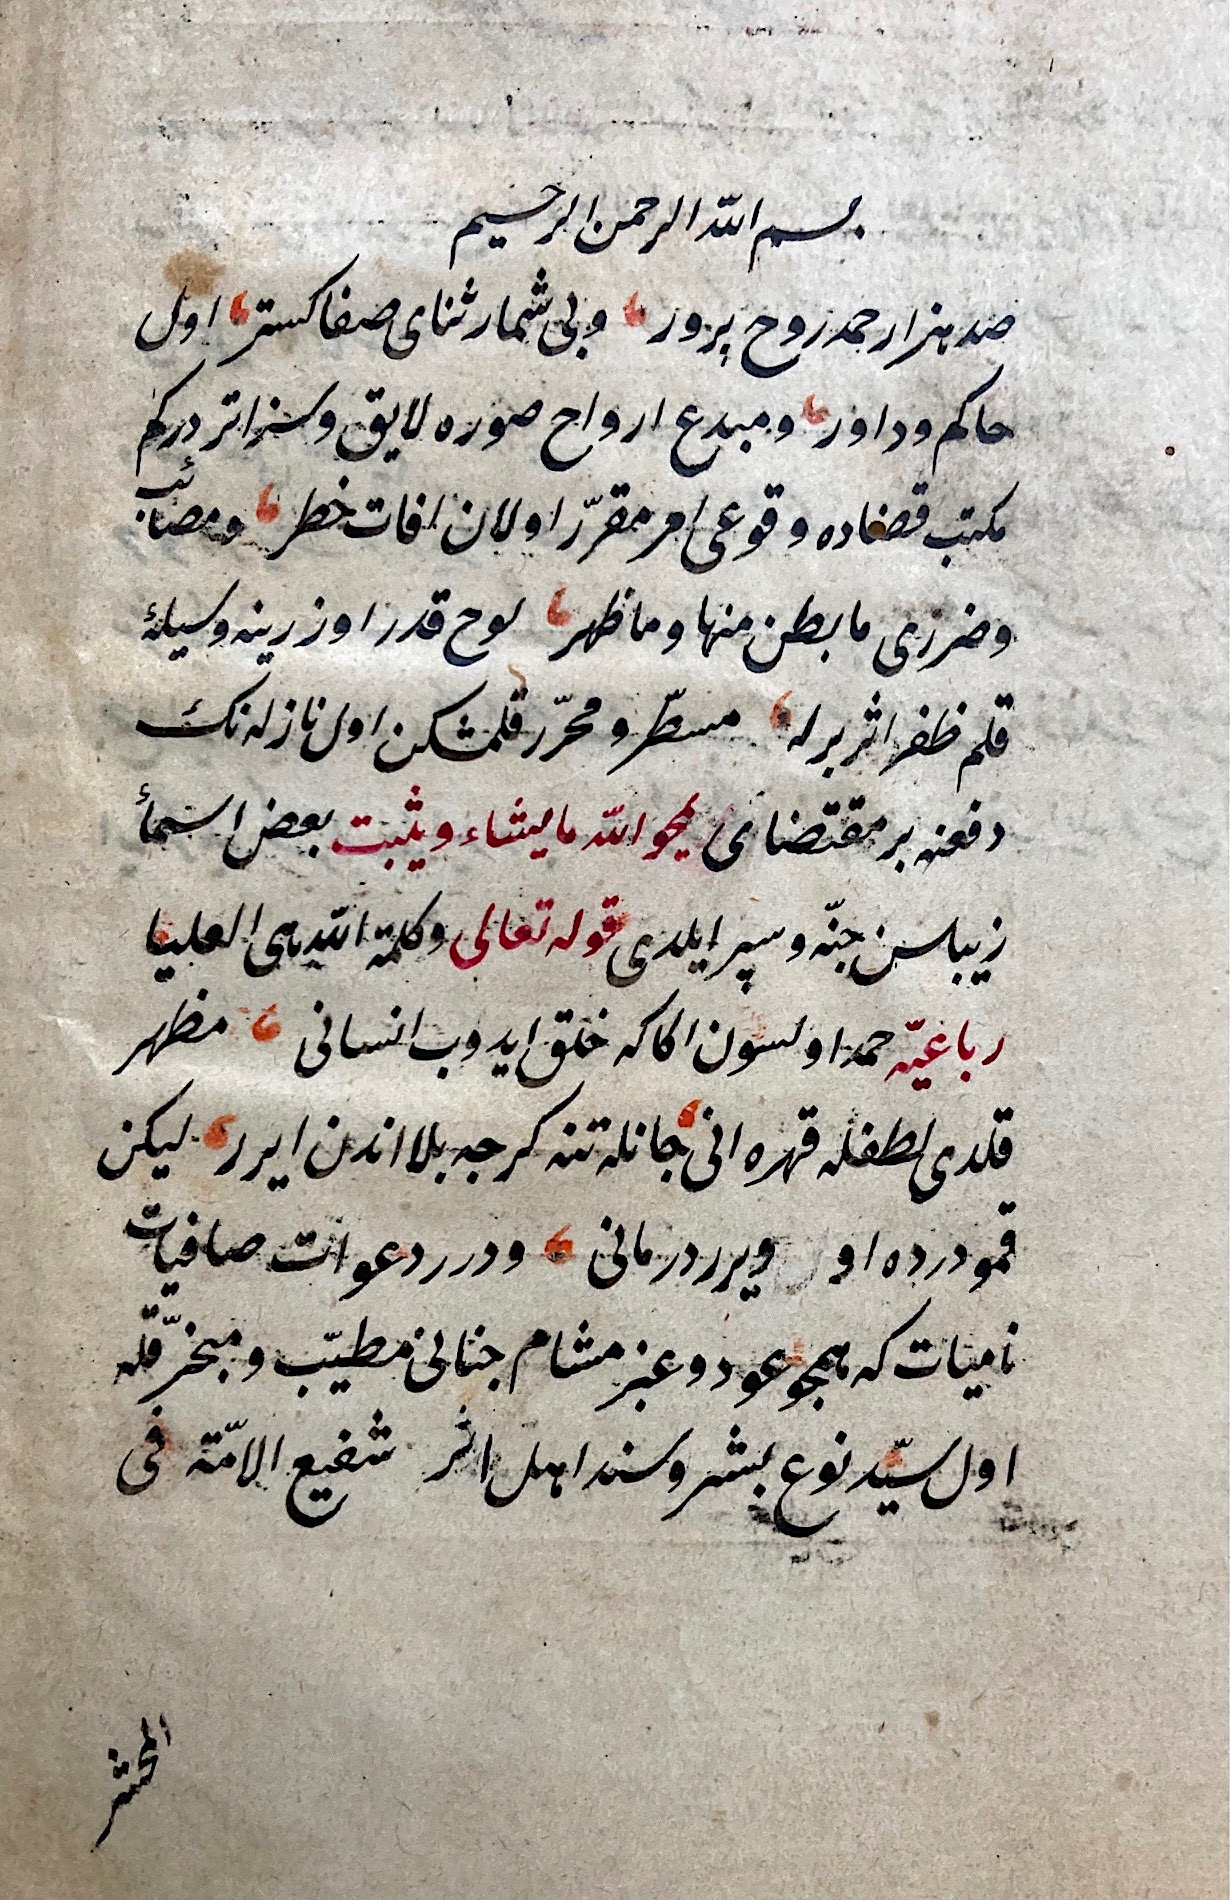 بسم اللّه الرحمن الرحيم
صد هزار حمد روح پرور، و بی شمار ثنای صفا كستر، اول
حاكم و داور، و مبدع ارواح صوره لايق و سزاتر دركم
مكتب قضاده وقوعی امر مقرّر اولان افات خطر، و مصائب
و ضرری ما بطن منها و ما ظهر، لوح قدر اوزرينه وسيلۀ
قلم ظفر اثر برله، مسطّر و محرّر قلمشكن اول نازله نك
دفعنه بر مقتضای يمحو اللّه ما يشاء ويثبت بعض اسمأ
زيباسن جنّه و سپر ايلدی قوله تعالی وكلمة اللّه هی العليا
رباعيّه حمد اولسون اكا كه خلق ايدوب انسانی، مظهر
قلدی لطفله قهره انی، جانله تنه كرجه بلا اندن ايرر، ليكن
قمو درده او ويرر درمانی، و درر دعوات صافيات
ناميات كه همجو عود و عنبر مشام جنانی مطيّب و مبخّر قله
اول سيّد نوع بشر و سند اهل اثر شفيع الامّة فی
المحشر